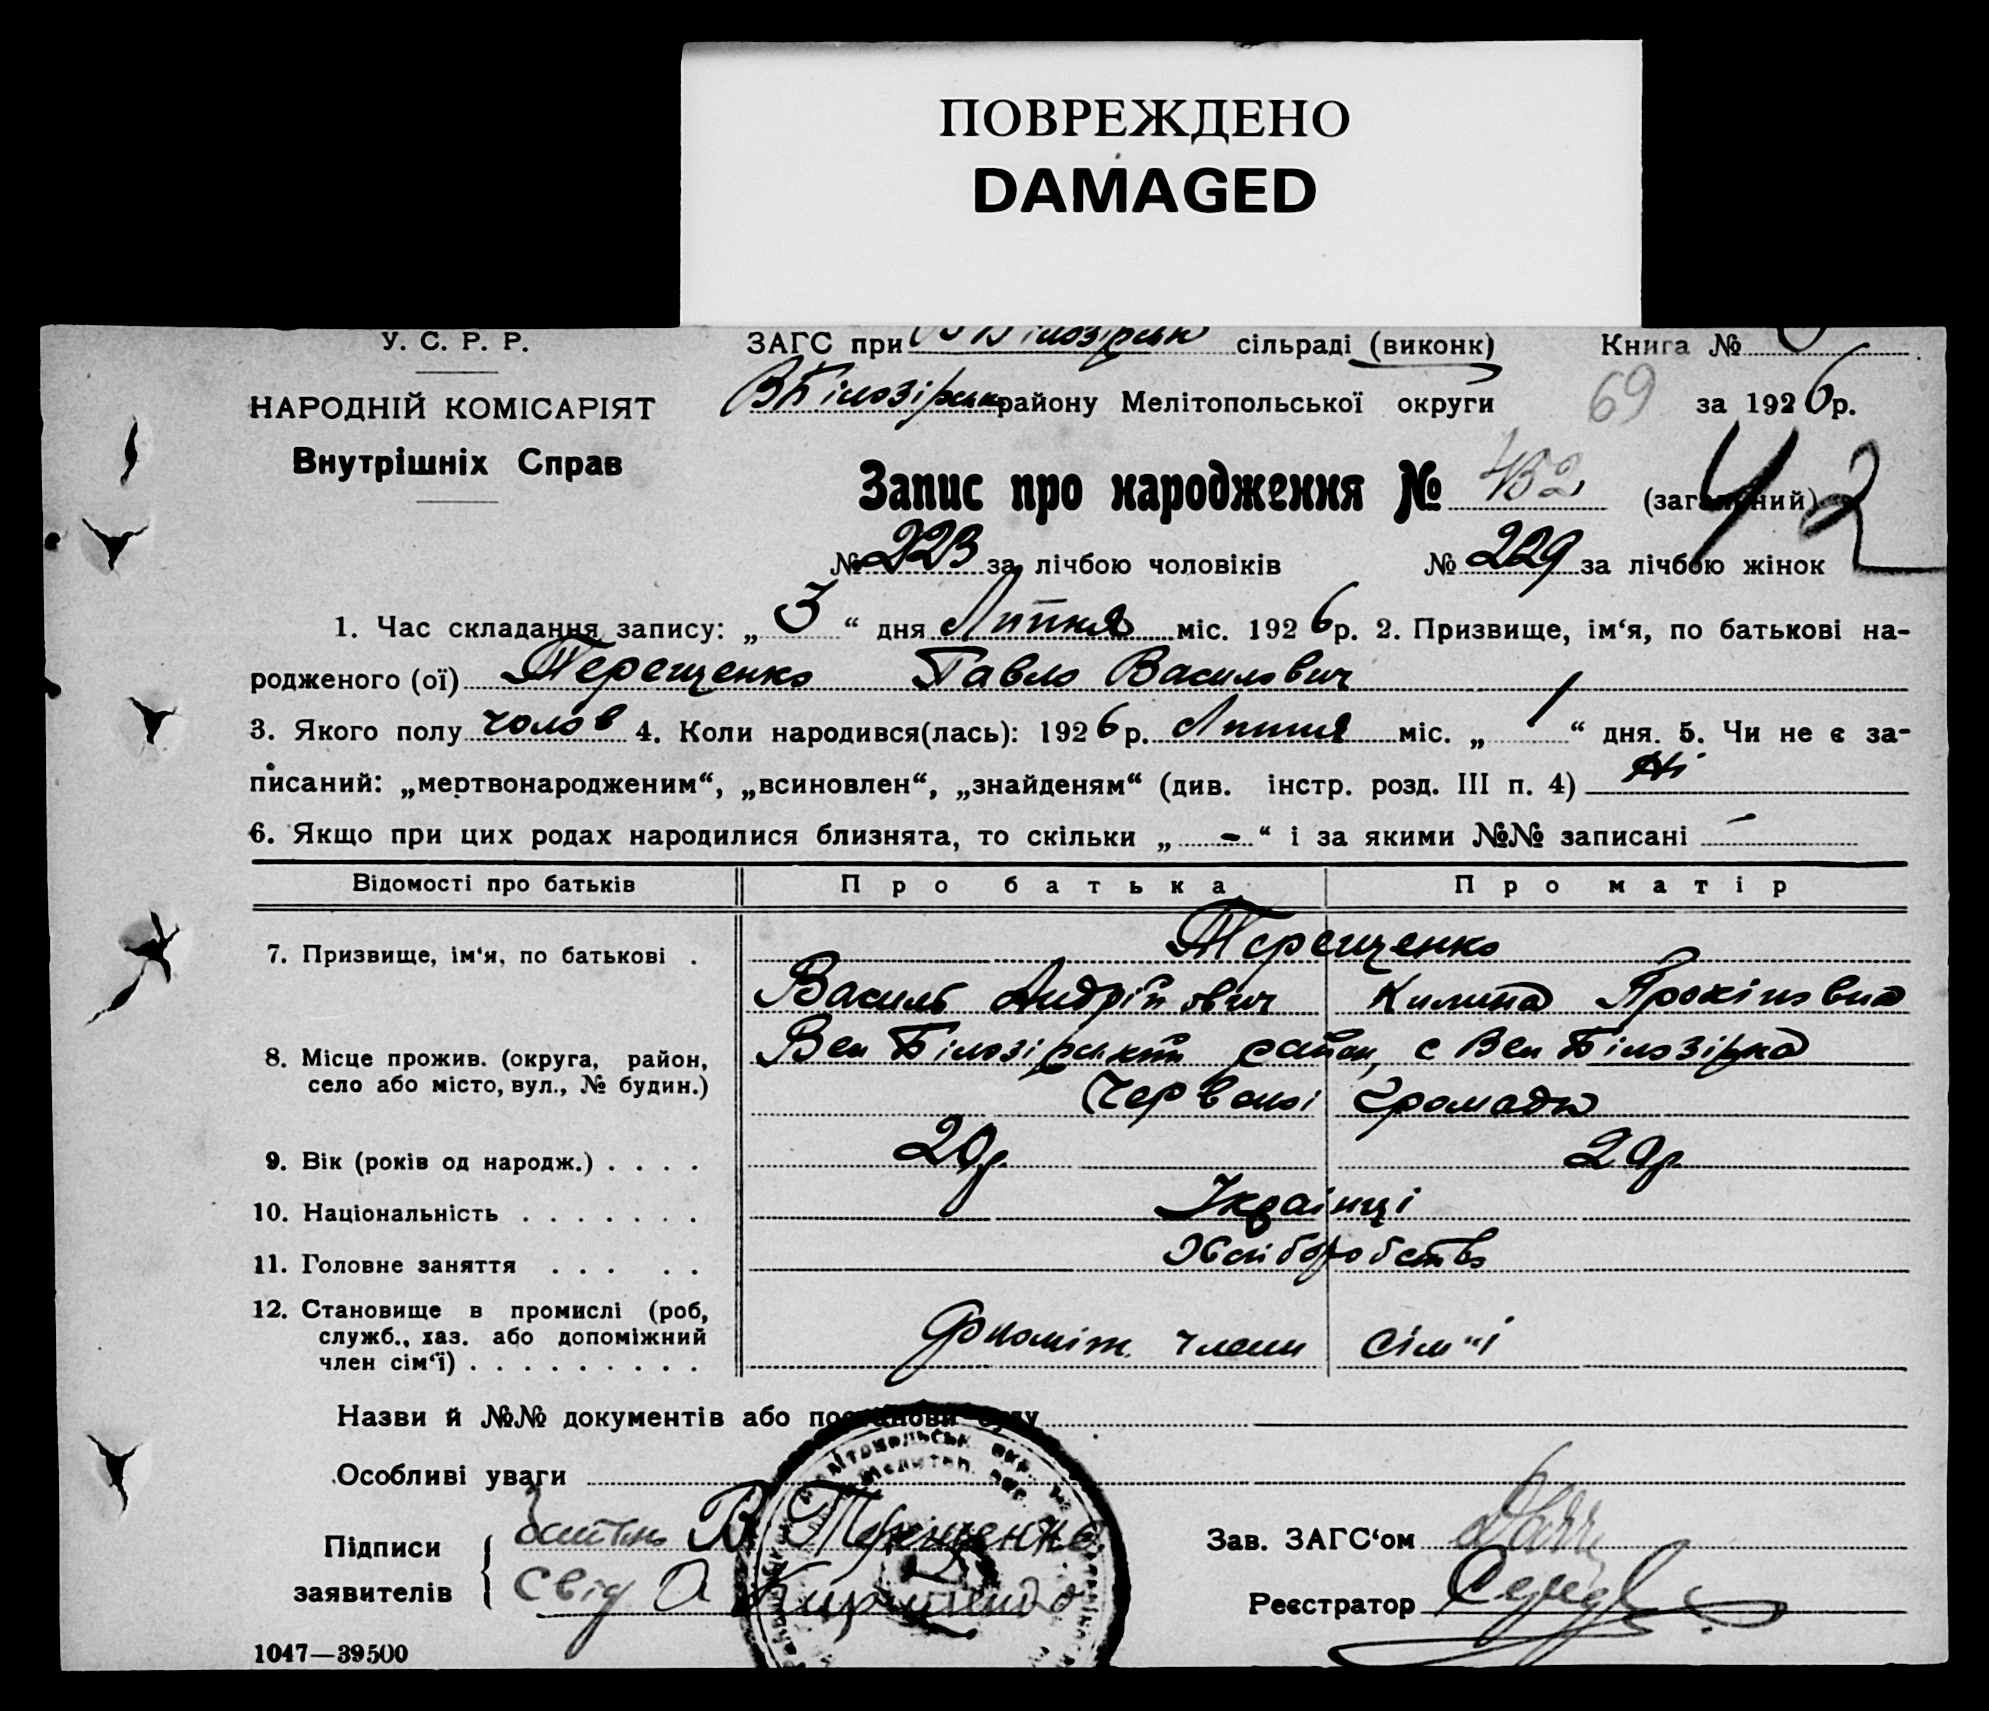 ПОВРЕЖДЕНО
DAMAGED
У. С. Р. Р. ЗАГС при В Білозірськ сільраді (виконк) Книга №
НАРОДНІЙ КОМІСАРІЯТ ВБілозірськ району Мелітопольської округи 69 за 1926р.
Внутрішніх Справ
Запис про народження № 452 (загальний) 42
№ 223 за лічбою чоловіків № 229 за лічбою жінок
1. Час складання запису: „ 3 “ дня Липня міс. 1926р. 2. Призвище, ім‘я, по батькові на-
родженого (ої) Терещенко Павло Василович
3. Якого полу чолов 4. Коли народився(лась): 1926р. Липня міс. „ 1 “ дня. 5. Чи не є за-
писаний: „мертвонародженим“, „всиновлен“, „знайденям“ (див. інстр. розд. III п. 4) Ні
6. Якщо при цих родах народилися близнята, то скільки „ - “ і за якими №№ записані -
Відомості про батьків Про батька Про матір
7. Призвище, ім‘я, по батькові . Терещенко
Василь Андрійович Килина Прокіповна
8. Місце прожив. (округа, район, Вел Білозірський район, с Вел Білозірка
село або місто, вул., № будин.) Червоної Громади
9. Вік (років од народж.) . . . . 20р. 20р
10. Національність . . . . . . . Українці
11. Головне заняття . . . . . Хліборобство
12. Становище в промислі (роб, служб., хаз. або допоміжний член сім‘ї) . . . . . . . . . допоміж. члени сім"ї
Назви й №№ документів або постанови суду
Особливі уваги
Підписи заявителів { батько В Терещенко
Свід А
Зав. ЗАГС‘ом
Реєстратор
1047—39500